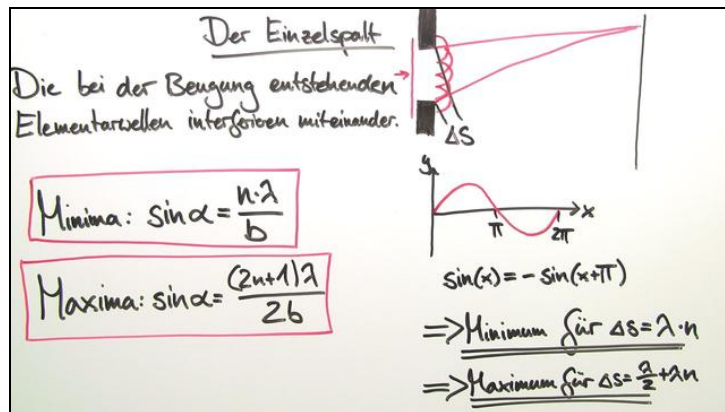 Der Einzelspalt
Die bei der Beugung entstehenden
Elementarwellen interferieren miteinander.
ΔS
Minima: sin α = n·λ / b
Maxima: sin α = (2n+1)λ / 2b
y
x
π
2π
sin(x) = - sin(x+π)
=> Minimum für Δs = λ·n
=> Maximum für Δs = λ/2 + λn